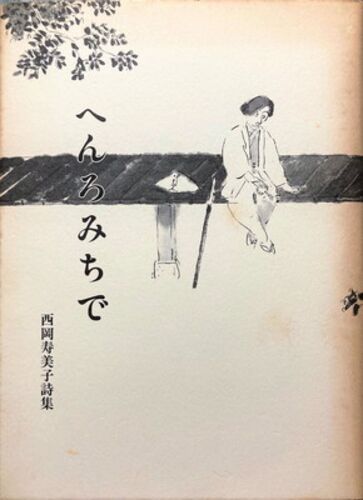 へんろみちで
西岡寿美子詩集